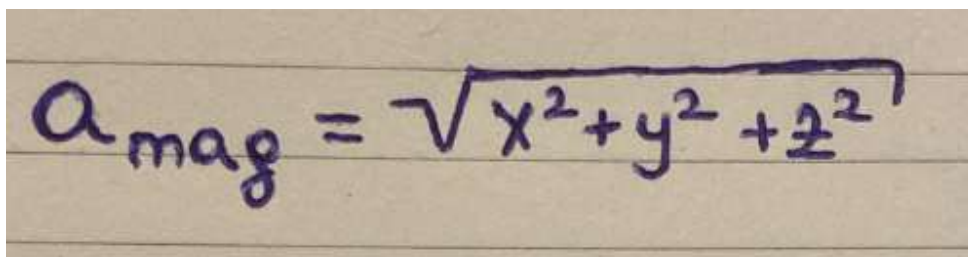 a_mag = √(x² + y² + z²)